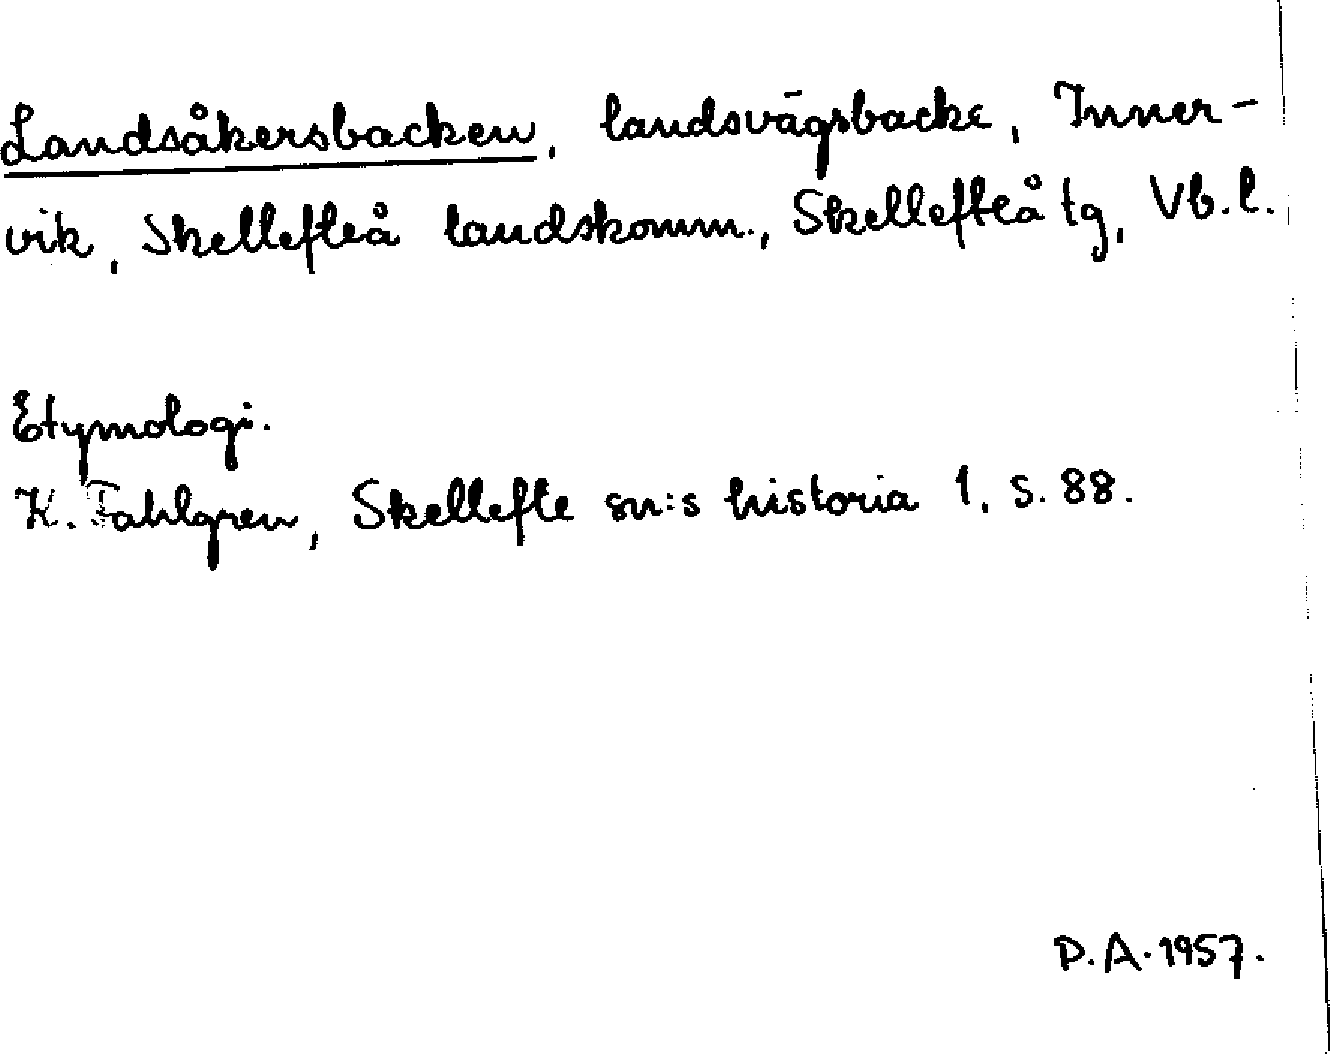 Landsåkersbacken, landsvägsbacke, Inner-
vik, Skellefteå landskomm., Skellefteå tg, Vb. l.
Etymologi.
K. Fahlgren, Skellefte sn:s historia 1, s. 88.
P.A. 1957.